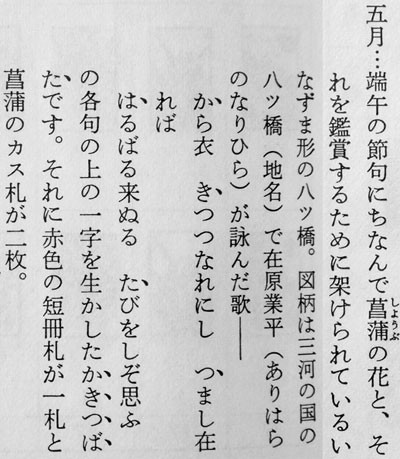 五月…端午の節句にちなんで菖蒲の花と、そ
れを鑑賞するために架けられているい
なずま形の八ッ橋。図柄は三河の国の
八ッ橋（地名）で在原業平（ありはら
のなりひら）が詠んだ歌──
から衣　きつつなれにし　つまし在
れば
はるばる来ぬる　たびをしぞ思ふ
の各句の上の一字を生かしたかきつば
たです。それに赤色の短冊札が一札と
菖蒲のカス札が二枚。
しょうぶ